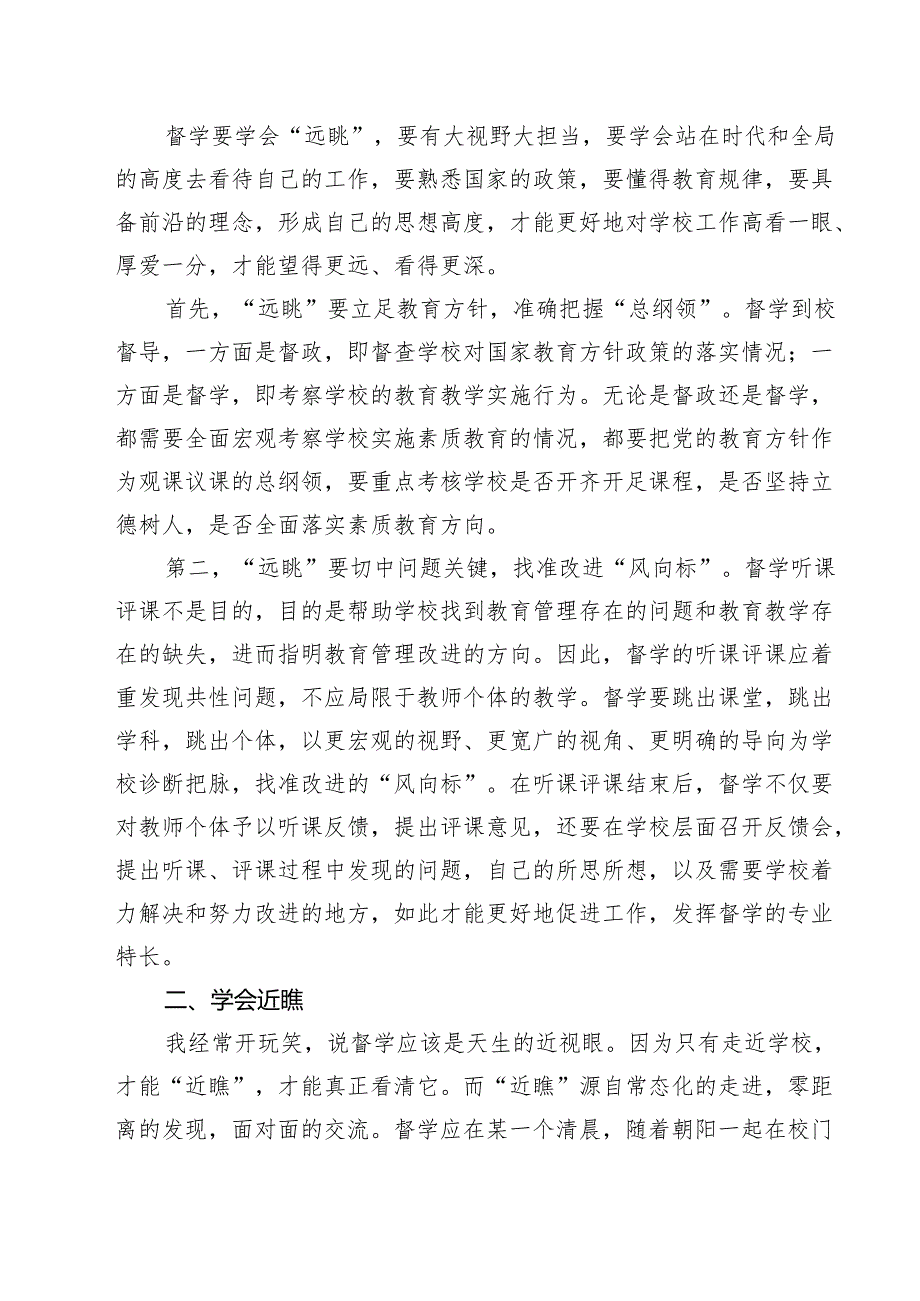 督学要学会“远眺”，要有大视野大担当，要学会站在时代和全局
的高度去看待自己的工作，要熟悉国家的政策，要懂得教育规律，要具
备前沿的理念，形成自己的思想高度，才能更好地对学校工作高看一眼、
厚爱一分，才能望得更远、看得更深。
首先，“远眺”要立足教育方针，准确把握“总纲领”。督学到校
督导，一方面是督政，即督查学校对国家教育方针政策的落实情况；一
方面是督学，即考察学校的教育教学实施行为。无论是督政还是督学，
都需要全面宏观考察学校实施素质教育的情况，都要把党的教育方针作
为观课议课的总纲领，要重点考核学校是否开齐开足课程，是否坚持立
德树人，是否全面落实素质教育方向。
第二，“远眺”要切中问题关键，找准改进“风向标”。督学听课
评课不是目的，目的是帮助学校找到教育管理存在的问题和教育教学存
在的缺失，进而指明教育管理改进的方向。因此，督学的听课评课应着
重发现共性问题，不应局限于教师个体的教学。督学要跳出课堂，跳出
学科，跳出个体，以更宏观的视野、更宽广的视角、更明确的导向为学
校诊断把脉，找准改进的“风向标”。在听课评课结束后，督学不仅要
对教师个体予以听课反馈，提出评课意见，还要在学校层面召开反馈会，
提出听课、评课过程中发现的问题，自己的所思所想，以及需要学校着
力解决和努力改进的地方，如此才能更好地促进工作，发挥督学的专业
特长。
二、学会近瞧
我经常开玩笑，说督学应该是天生的近视眼。因为只有走近学校，
才能“近瞧”，才能真正看清它。而“近瞧”源自常态化的走进，零距
离的发现，面对面的交流。督学应在某一个清晨，随着朝阳一起在校门